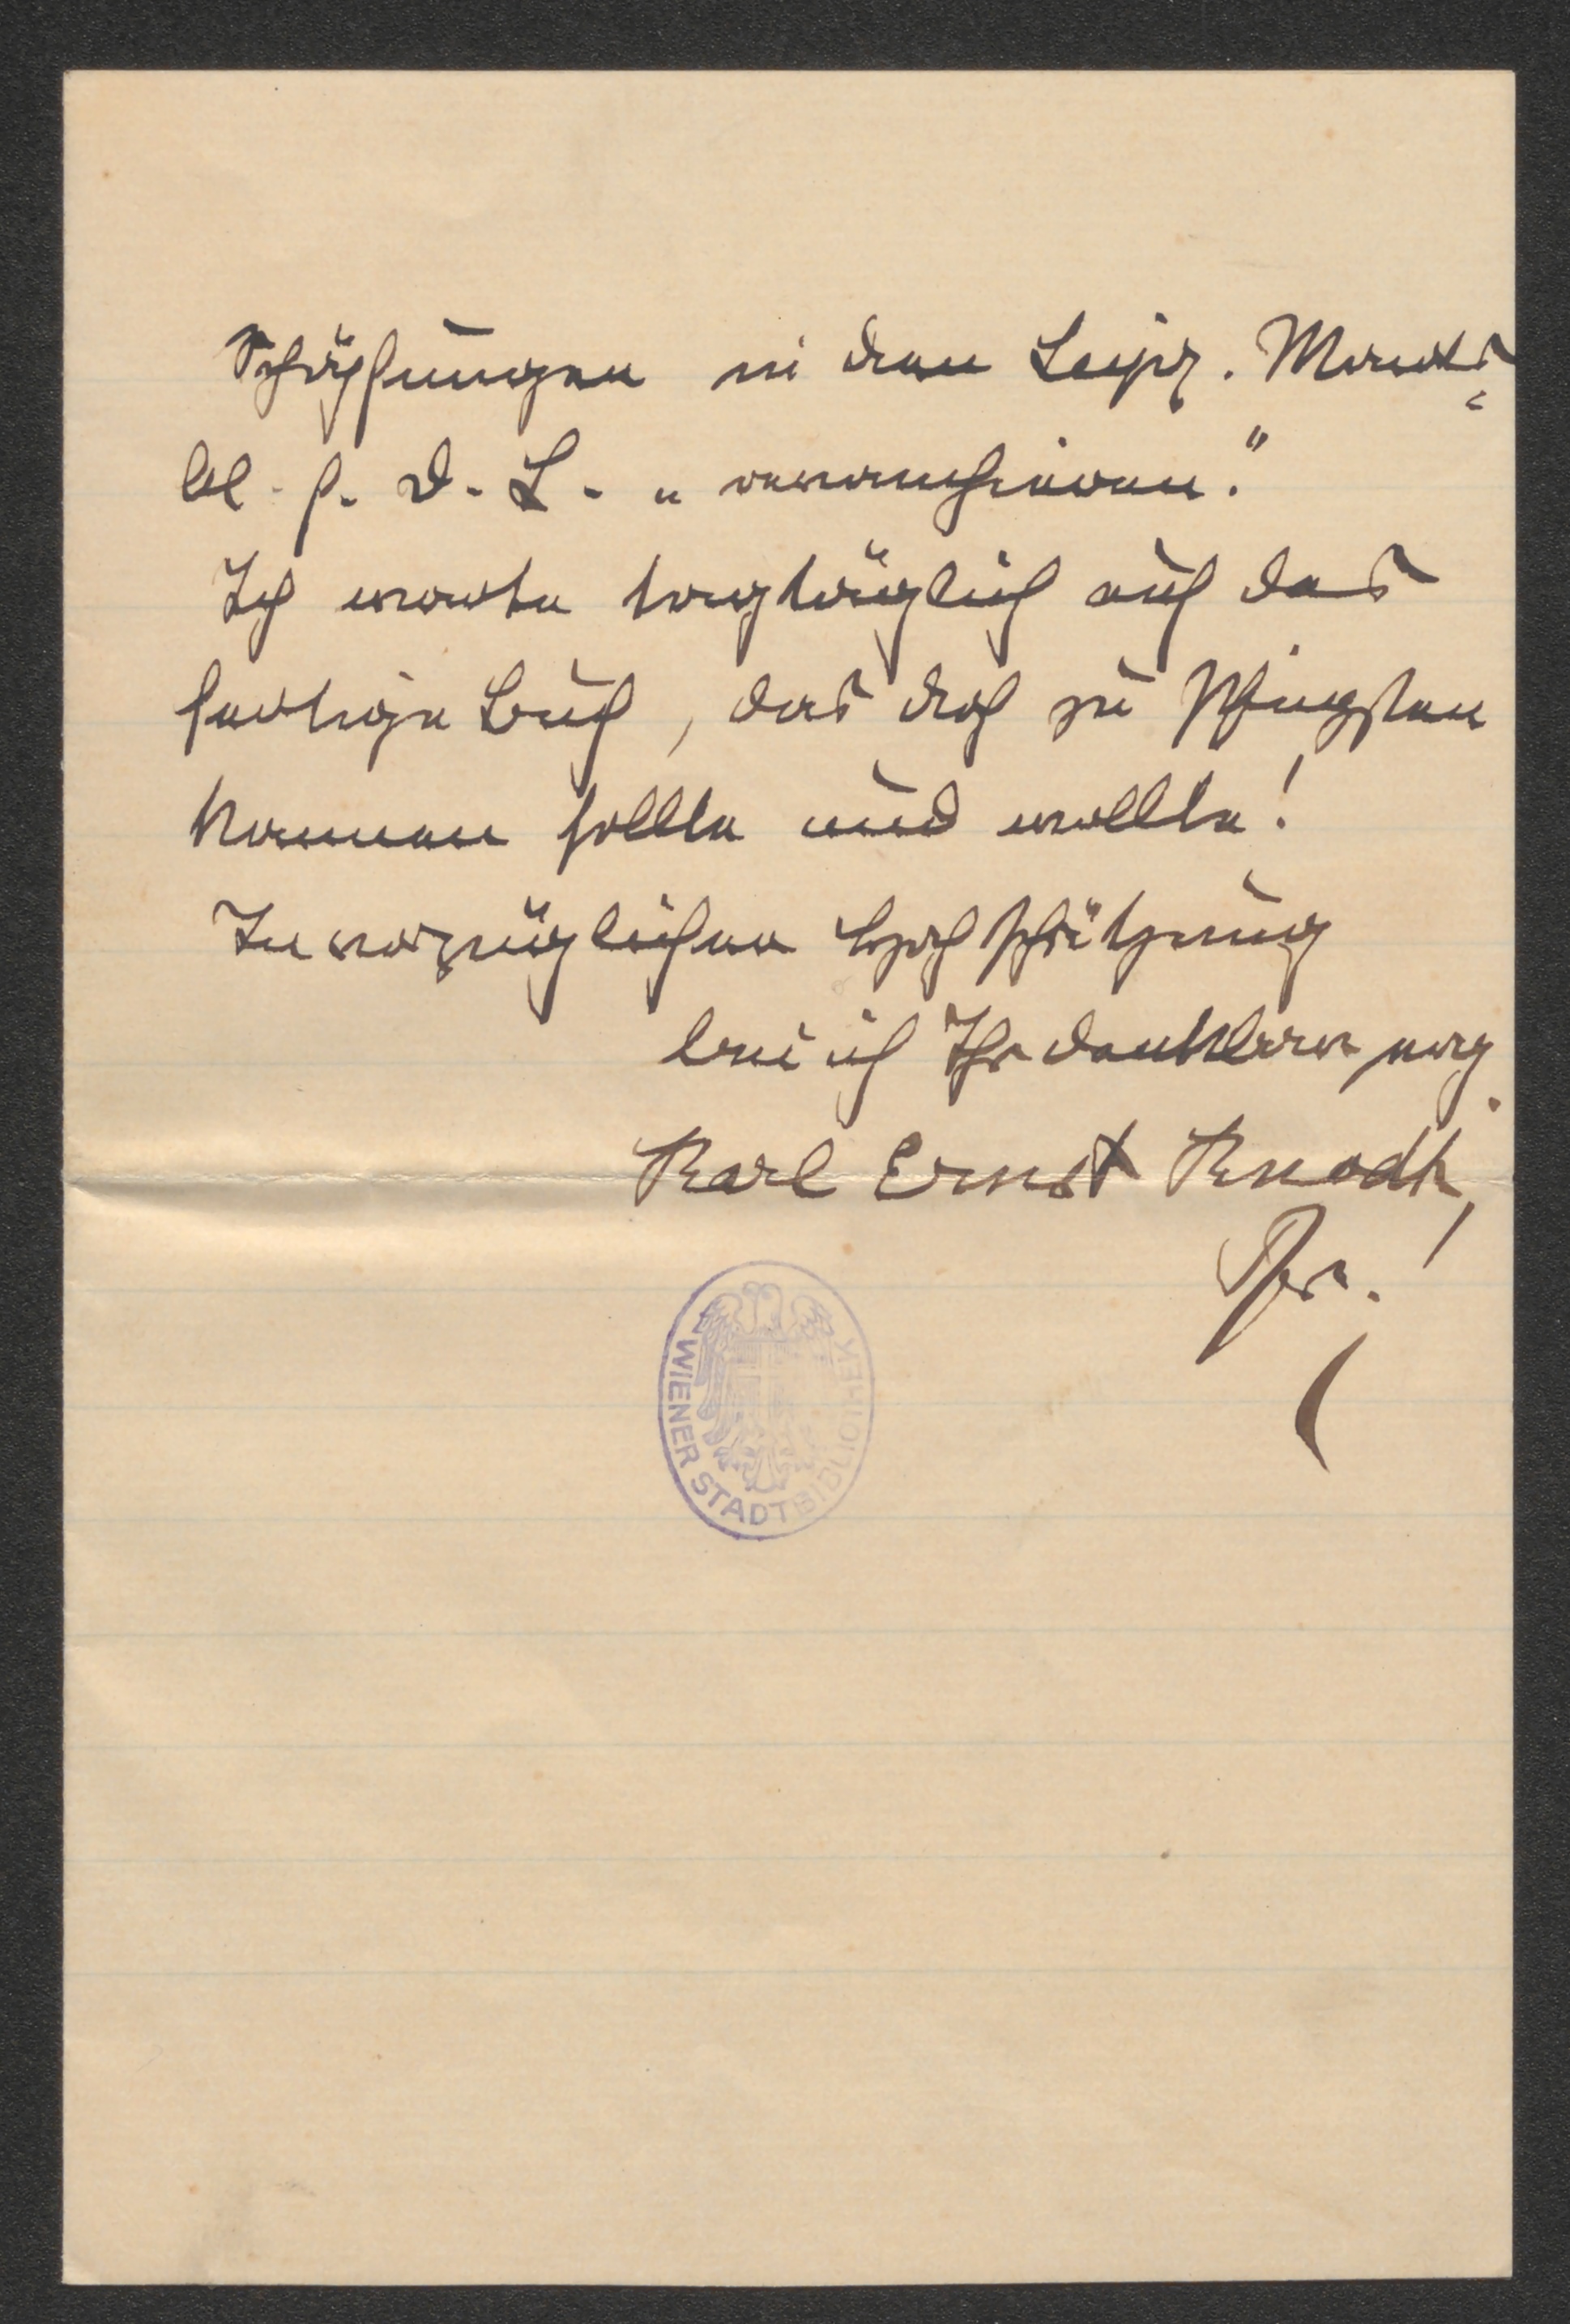 Schöpfungen in den Leipz. Monats-
bl. f. D. L. „revanchieren."
Ich warte tagtäglich auf das
fertige Buch, das doch zu Pfingsten
kommen sollte und wollte!
In vorzüglicher Hochschätzung
bin ich Ihr dankbar erg.
Karl Ernst Knodt,
Pfr.
WIENER STADTBIBLIOTHEK